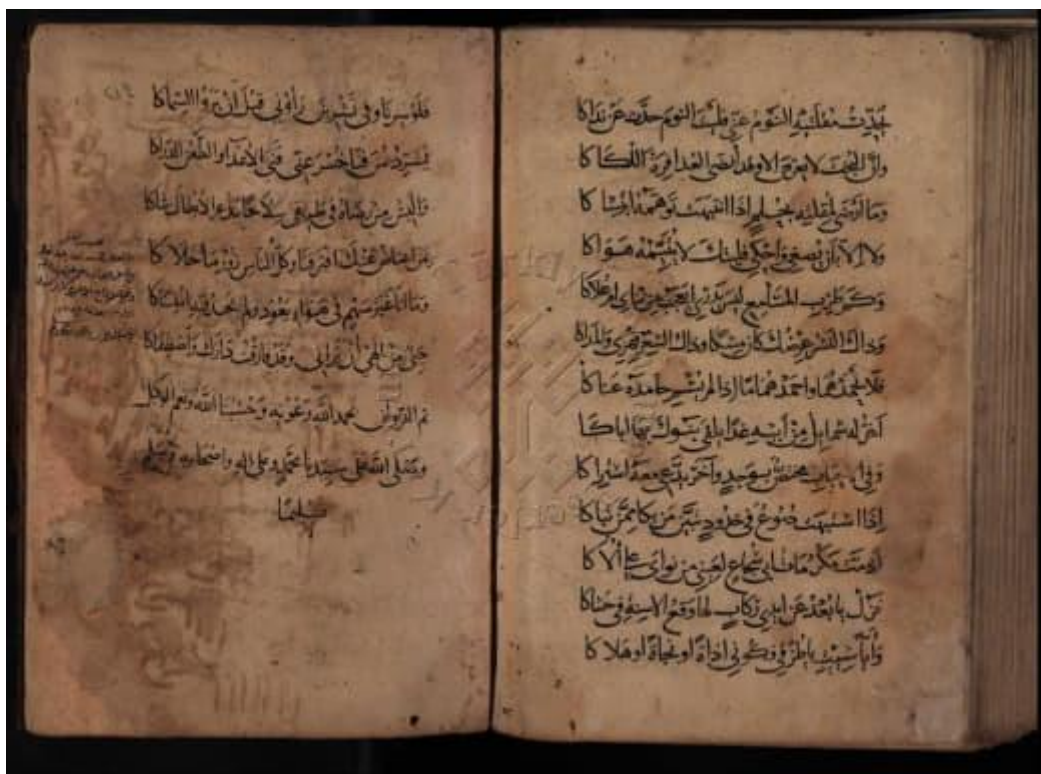 يحدث مقلتيه النوم عني فليت النوم حدث عن نداكا
وان البخت لا يعرقن الا وقد أنضى العذافرة اللكاكا
وما ارضى لمقلته بحلم اذا انتبهت توهمه ابتشاكا
ولا الا بان يصغي واحكي فليتك لا يتيمه هواكا
وكم طرب المسامع ليس يدري ايعجب من ثنائي ام علاكا
وذاك النشر عرضك كان مسكا وذاك الشعر فهري والمداكا
فلا تحمدهما واحمد هماما اذا لم يسم حامده عناكا
أغر له شمايل من أبيه غدا يلقى بنوك بها اباكا
وفي الاحباب مختص بوجد وآخر يدعي معه اشتراكا
إذا اشتبهت دموع في خدود تبين من بكا ممن تباكا
اذمت مكرمات ابي شجاع لعيني من نواي على ألاكا
فزل يا بعد عن ايدي ركاب لها وقع الاسنة في حشاكا
وأيا شئت يا طرقي فكوني اذاة او نجاة او هلاكا
فلو سرنا وفي تشرين رأوني قبل ان يروا السماكا
يشرد يمن فناخسر عني قنى الاعداء والطعن الدراكا
والبس من رضاه في طريقي سلاحا يذعر الابطال شاكا
ومن اعتاض منك اذا افترقنا وكل الناس زور ما خلاكا
وما انا غير سهم في هواء يعود ولم يجد فيه امتساكا
حيي من الهي أن يراني وقد فارقت دارك واصطفاكا
تم الديوان بحمد الله وعونه وحسبنا الله ونعم الوكيل
وصلى الله على سيدنا محمد وعلى اله واصحابه وسلم
تسليما